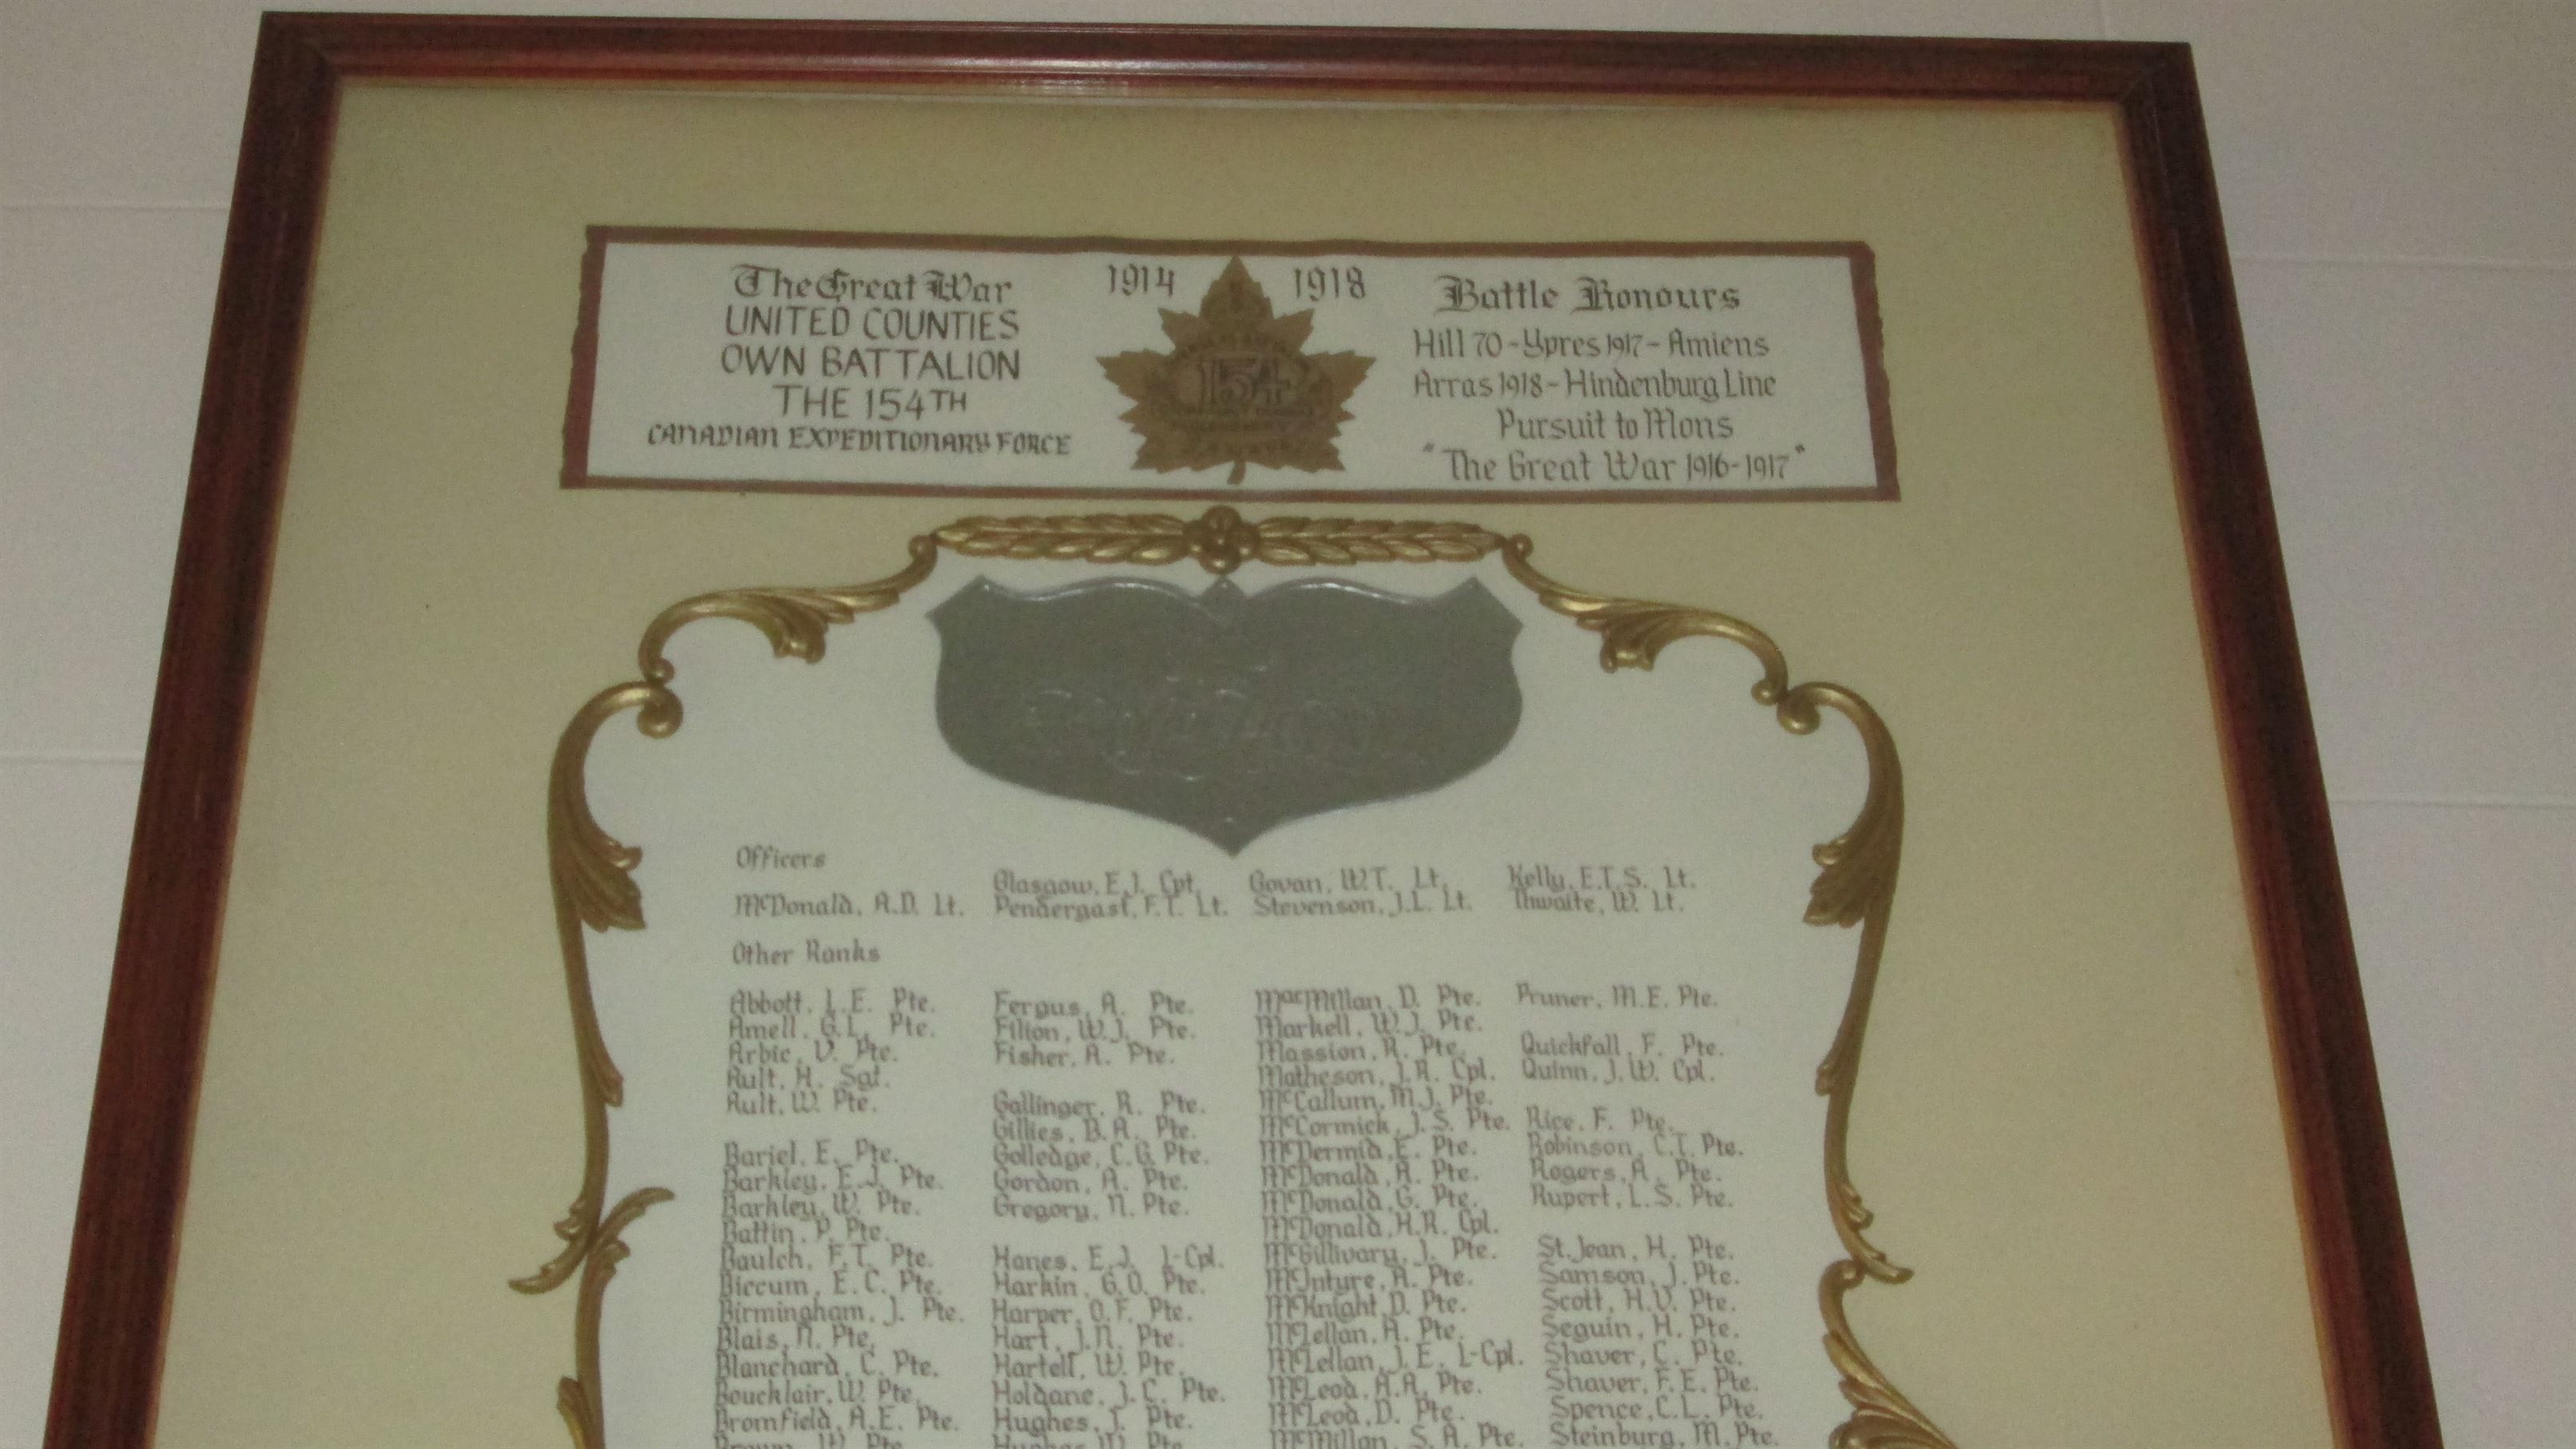 The Great War
UNITED COUNTIES
OWN BATTALION
THE 154TH
CANADIAN EXPEDITIONARY FORCE
1914 1918
154
Battle Honours
Hill 70 - Ypres 1917 - Amiens
Arras 1918 - Hindenburg Line
Pursuit to Mons
"The Great War 1916-1917"
Officers
McDonald, A.D. Lt.
Glasgow, E.J. Cpt.
Pendergast, F.T. Lt.
Govan, W.T. Lt.
Stevenson, J.L. Lt.
Kelly, E.T.S. Lt.
Thwaite, W. Lt.
Other Ranks
Abbott, L.E. Pte.
Amell, G.L. Pte.
Arbic, V. Pte.
Ault, H. Sgt.
Ault, W. Pte.
Bariel, E. Pte.
Barkley, E.J. Pte.
Barkley, W. Pte.
Battin, P. Pte.
Baulch, F.T. Pte.
Biccum, E.C. Pte.
Birmingham, J. Pte.
Blais, N. Pte.
Blanchard, C. Pte.
Boucklair, W. Pte.
Bromfield, A.E. Pte.
Brown, W. Pte.
Fergus, A. Pte.
Filion, W.J. Pte.
Fisher, A. Pte.
Gallinger, R. Pte.
Gillies, B.A. Pte.
Golledge, C.G. Pte.
Gordon, A. Pte.
Gregory, N. Pte.
Hanes, E.J. L-Cpl.
Harkin, G.O. Pte.
Harper, O.F. Pte.
Hart, J.N. Pte.
Hartell, W. Pte.
Holdane, J.C. Pte.
Hughes, T. Pte.
Hughes, W. Pte.
MacMillan, D. Pte.
Markell, W.J. Pte.
Massion, R. Pte.
Matheson, J.A. Cpl.
McCallum, M.J. Pte.
McCormick, J.S. Pte.
McDermid, E. Pte.
McDonald, A. Pte.
McDonald, G. Pte.
McDonald, H.R. Cpl.
McGillivary, J. Pte.
McIntyre, A. Pte.
McKnight, D. Pte.
McLellan, A. Pte.
McLellan, J.E. L-Cpl.
McLeod, A.A. Pte.
McLeod, D. Pte.
McMillan, S.A. Pte.
Pruner, M.E. Pte.
Quickfall, F. Pte.
Quinn, J.W. Cpl.
Rice, F. Pte.
Robinson, C.T. Pte.
Rogers, A. Pte.
Rupert, L.S. Pte.
St. Jean, H. Pte.
Samson, J. Pte.
Scott, H.V. Pte.
Seguin, H. Pte.
Shaver, C. Pte.
Shaver, F.E. Pte.
Spence, C.L. Pte.
Steinburg, M. Pte.